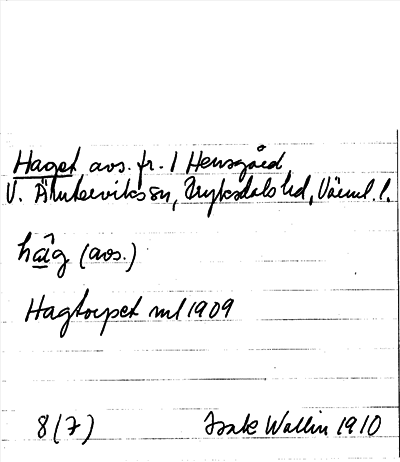 Haget avs. fr. 1 Hensgård
V. Ämterviks sn, Fryksdals hd, Värml. l.
hâg (avs.)
Hagtorpet ml 1909
8(7) Isak Wallin 1910